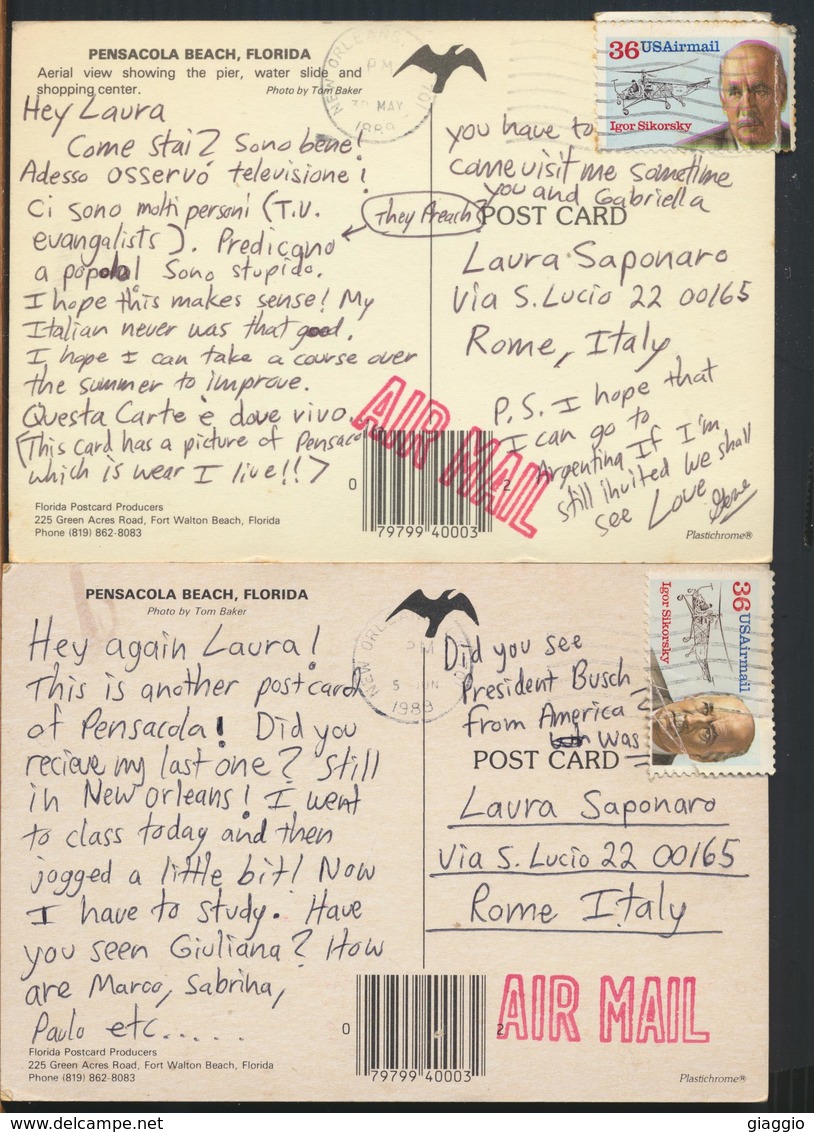 PENSACOLA BEACH, FLORIDA
Aerial view showing the pier, water slide and
shopping center. Photo by Tom Baker
NEW ORLEANS, 701
PM
30 MAY
1989
36 USAirmail
Igor Sikorsky
Hey Laura
Come stai? Sono bene!
Adesso osservo televisione!
Ci sono molti personi (T.V.
evangalists). Predicano
They Preach
a popola! Sono stupido.
I hope this makes sense! My
Italian never was that good.
I hope I can take a course over
the summer to improve.
Questa Carte è dove vivo.
(This card has a picture of Pensacola
which is wear I live!!)
you have to
come visit me sometime
you and Gabriella
POST CARD
Laura Saponaro
Via S. Lucio 22 00165
Rome, Italy
P.S. I hope that
I can go to
Argentina If I'm
still invited we shall
see Love Gene
AIR MAIL
0 2
79799 40003
Florida Postcard Producers
225 Green Acres Road, Fort Walton Beach, Florida
Phone (819) 862-8083
Plastichrome®
PENSACOLA BEACH, FLORIDA
Photo by Tom Baker
NEW ORLEANS
PM
5 JUN
1989
36 USAirmail
Igor Sikorsky
Hey again Laura!
This is another postcard
of Pensacola! Did you
recieve my last one? Still
in New Orleans! I went
to class today and then
jogged a little bit! Now
I have to study. Have
you seen Giuliana? How
are Marco, Sabrina,
Paulo etc......
Did you see
President Busch
from America?
was
POST CARD
Laura Saponaro
Via S. Lucio 22 00165
Rome Italy
AIR MAIL
0 2
79799 40003
Florida Postcard Producers
225 Green Acres Road, Fort Walton Beach, Florida
Phone (819) 862-8083
Plastichrome®
giaggio